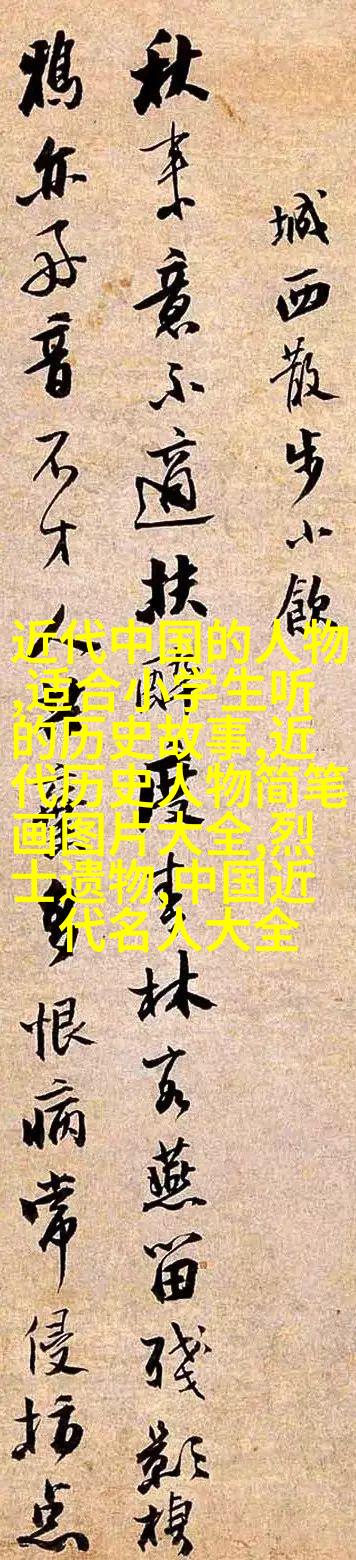 城西散步小飲
秋来意不適扶醉青林客燕留残影棲
鴉亦好音不才人恨病常侵指点
近代中国的人物
,适合小学生听
的历史故事,近
代历史人物简笔
画图片大全,烈
士,遗物,中国近
代名人大全